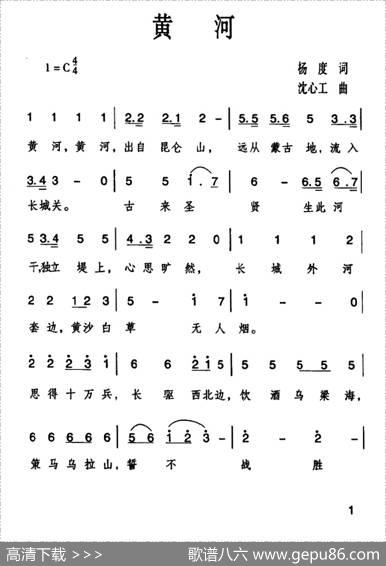 黄 河
1=C 4/4
杨 度 词
沈心工 曲
1 1 1 1 | 2.2 2.1 2 - | 5.5 5.6 5 3.3 |
黄 河，黄 河，出自 昆仑 山， 远从 蒙古 地，流入
3.43 - 0 | 5 5 i.7 | 6 - 6.5 6.7 |
长城关。 古 来圣 贤 生此 河
5 3.4 5 5 | 4.3 2 2 0 | 1 1 1 2 |
干，独立 堤上，心思 旷 然， 长 城 外 河
2 2 1 2 3 | 5 - i 7 | i - - 0 |
套 边，黄沙 白 草 无 人 烟。
2 2 2 3 1 | 6 6 2 i 5 | 5 5 5 5 5 |
思 得 十 万 兵，长 驱 西北边，饮 酒 乌 梁 海，
6 6 6 6 6 | 5 6 i 2 3 - | 2 - 2 - |
策 马 乌 拉 山，誓 不 战 胜
1
高清下载 >>>
歌谱八六 www.gepu86.com